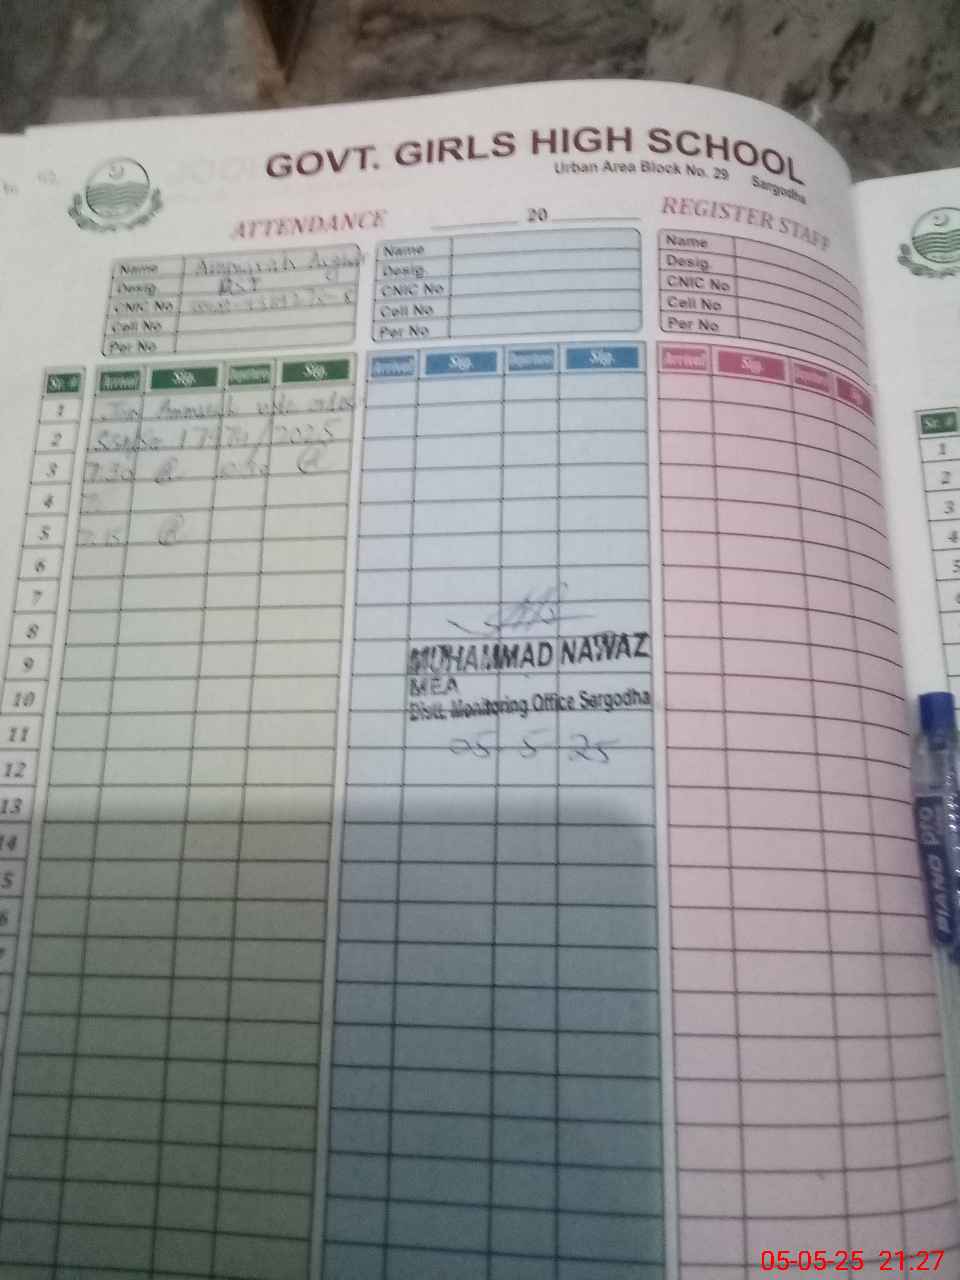 GOVT. GIRLS HIGH SCHOOL
Urban Area Block No. 29 Sargodha
ATTENDANCE 20 REGISTER STAFF
Name
Desig
CNIC No
Cell No
Per No
Name
Desig
CNIC No
Cell No
Per No
Name
Desig
CNIC No
Cell No
Per No
Sr. # Arrival Sig. Departure Sig. Arrival Sig. Departure Sig. Arrival Sig. Departure Sig.
1
2 /2025
3 7:30
4
5 7:15
6
7
8
9
10
11
12
13
14
5
6
7
MUHAMMAD NAWAZ
MEA
Distt. Monitoring Office Sargodha
05 5 25
Sr. #
1
2
3
4
5
PIANO
05-05-25 21:27